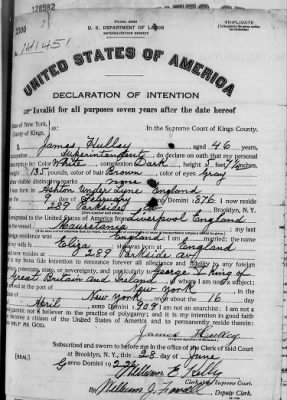 128982
TRIPLICATE
U. S. DEPARTMENT OF LABOR
NATURALIZATION SERVICE
No. 141451
UNITED STATES OF AMERICA
DECLARATION OF INTENTION
Invalid for all purposes seven years after the date hereof
State of New York,
County of Kings, ss:
In the Supreme Court of Kings County.
I, James Hulley aged 46 years,
occupation Superintendent, do declare on oath that my personal
description is: Color White, complexion Dark, height 5 feet inches,
weight 135 pounds, color of hair Brown, color of eyes Gray
other visible distinctive marks none
I was born in Ashton Under Lyne England
on the 9 day of February, anno Domini 1876; I now reside
at 289 Parkside Brooklyn, N. Y.
I emigrated to the United States of America from Liverpool England
on the vessel Mauretania; my last
foreign residence was England; I am married; the name
of my wife is Eliza; she was born in England
and now resides at 289 Parkside av
It is my bona fide intention to renounce forever all allegiance and fidelity to any foreign
prince, potentate, state, or sovereignty, and particularly to George V King of
Great Britain and Ireland, of whom I am now a subject;
I arrived at the port of New York, in the
State of New York, on or about the 16 day
of April, anno Domini 1909; I am not an anarchist; I am not a
polygamist nor a believer in the practice of polygamy; and it is my intention in good faith
to become a citizen of the United States of America and to permanently reside therein:
SO HELP ME GOD.
James Hulley
Subscribed and sworn to before me in the office of the Clerk of said Court
at Brooklyn, N. Y., this 28 day of June
[SEAL]
anno Domini 1922
William E Kelly
Clerk of the Supreme Court.
By William J.
Deputy Clerk.